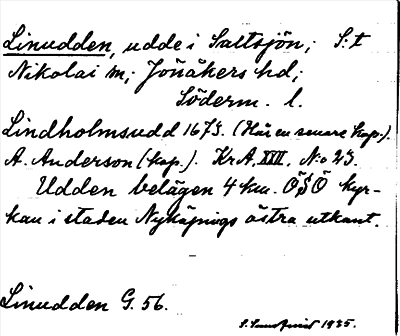 Linudden, udde i Saltsjön; S:t
Nikolai sn; Jönåkers hd;
Söderm. l.
Lindholmsudd 1675. (Här en senare kop.).
A. Anderson (kop.). KrA. XXII. N:o 23.
Udden belägen 4 km. ÖSÖ kyr-
kan i staden Nyköpings östra utkant.
Linudden G. 56.
1935.